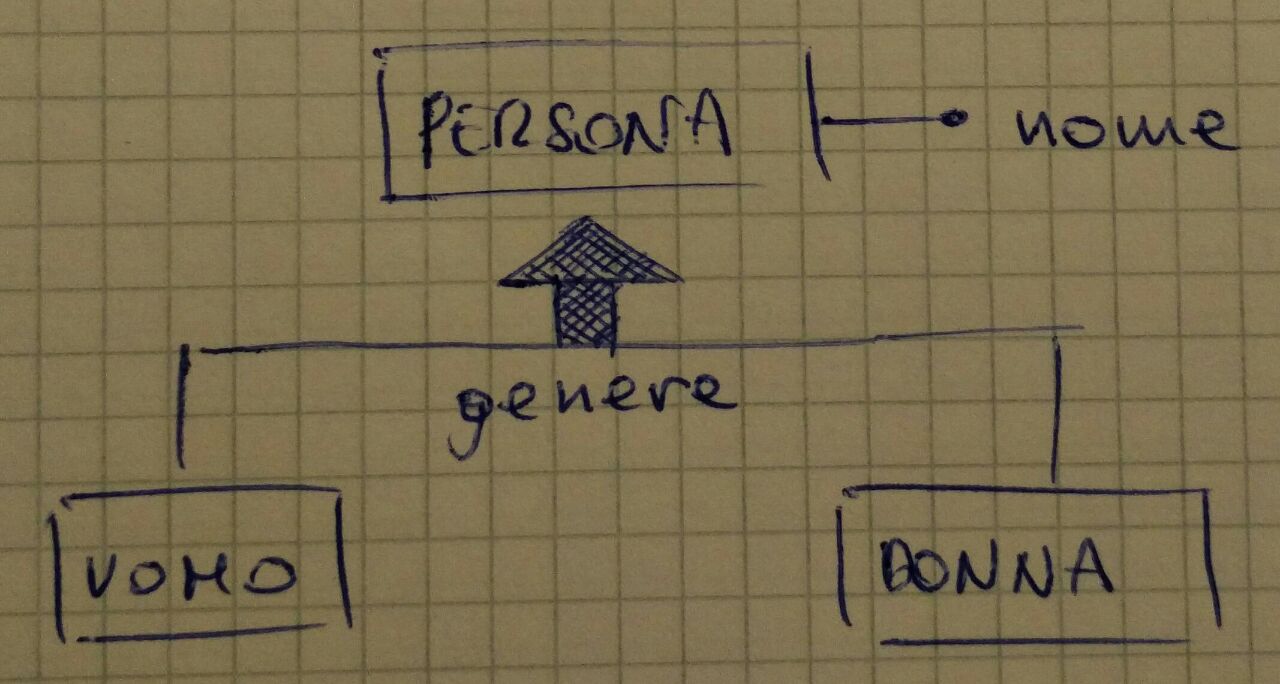 PERSONA
nome
genere
UOMO
DONNA